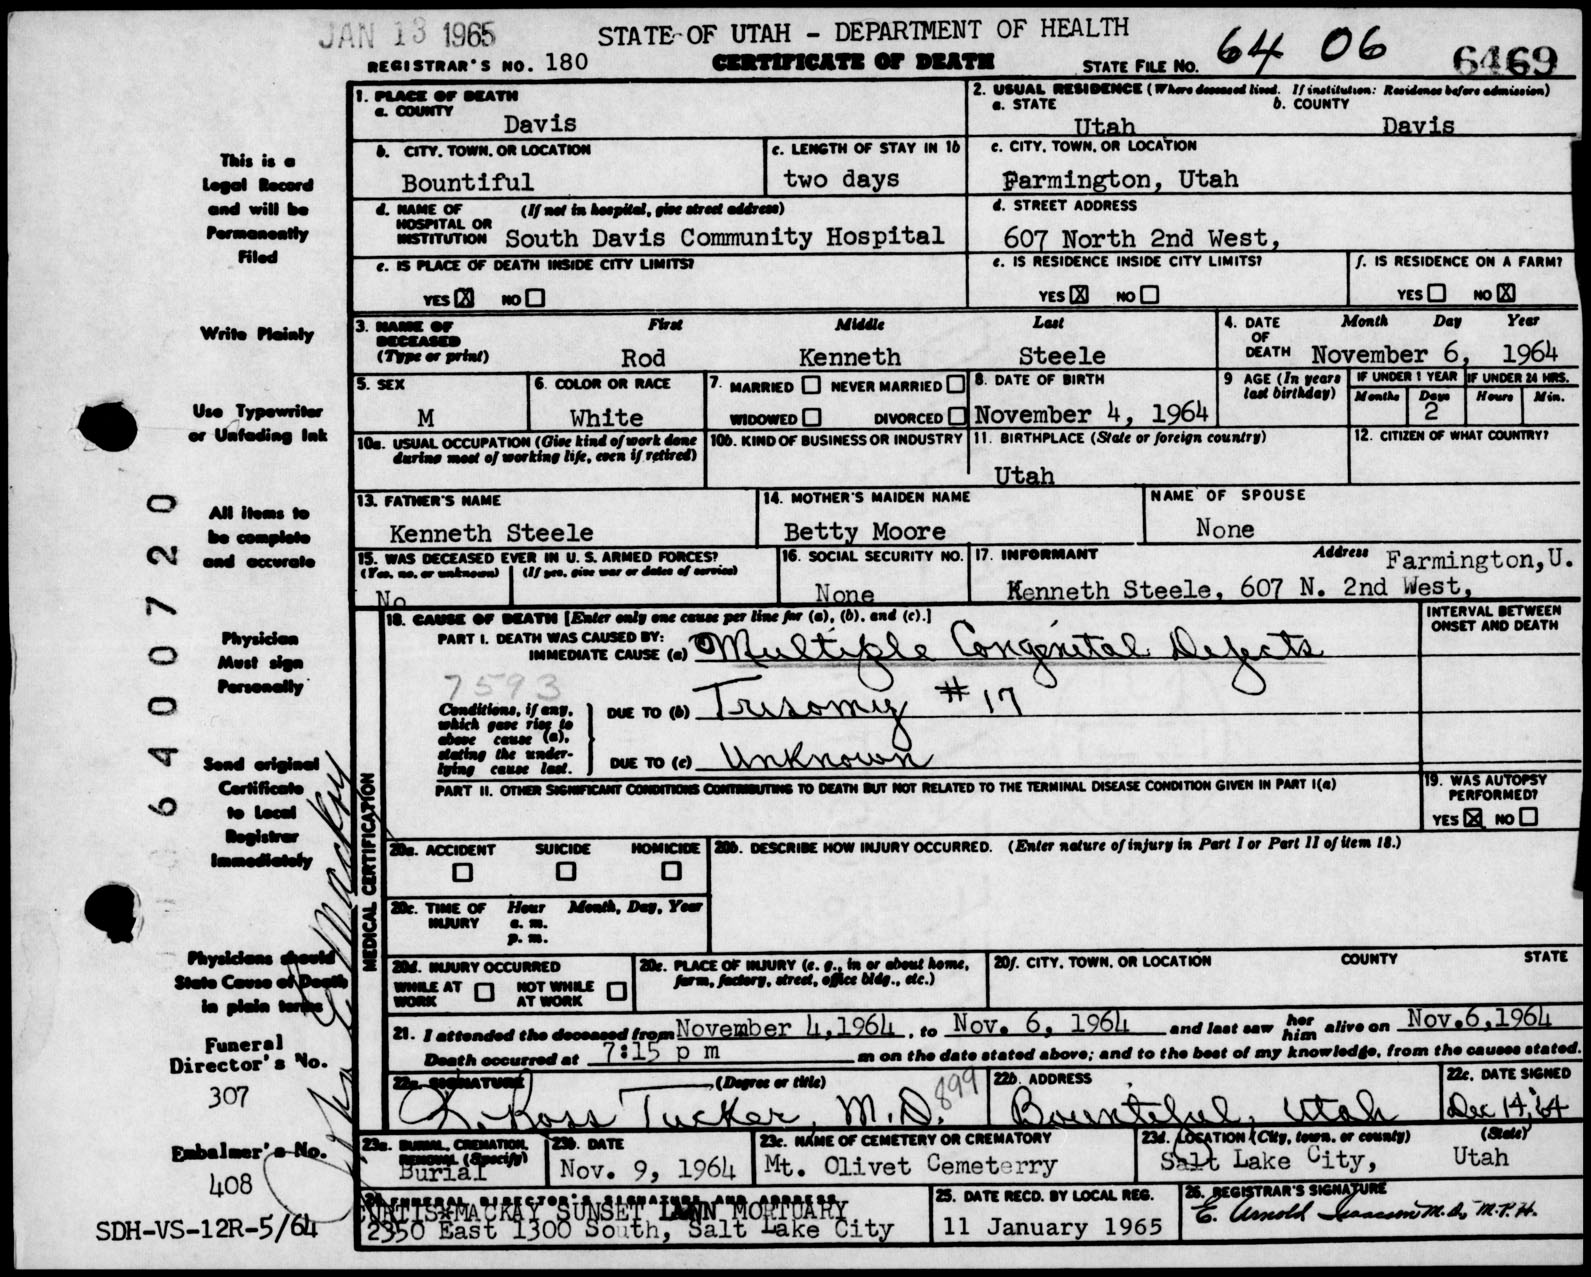 JAN 13 1965
STATE OF UTAH - DEPARTMENT OF HEALTH
REGISTRAR'S NO. 180
CERTIFICATE OF DEATH
STATE FILE NO. 64 06 6469
1. PLACE OF DEATH
a. COUNTY
Davis
2. USUAL RESIDENCE (Where deceased lived. If institution: Residence before admission)
a. STATE b. COUNTY
Utah Davis
b. CITY, TOWN, OR LOCATION
Bountiful
c. LENGTH OF STAY IN 1b
two days
c. CITY, TOWN, OR LOCATION
Farmington, Utah
d. NAME OF (If not in hospital, give street address)
HOSPITAL OR
INSTITUTION South Davis Community Hospital
d. STREET ADDRESS
607 North 2nd West,
e. IS PLACE OF DEATH INSIDE CITY LIMITS?
YES X NO
e. IS RESIDENCE INSIDE CITY LIMITS?
YES X NO
f. IS RESIDENCE ON A FARM?
YES NO X
3. NAME OF First Middle Last
DECEASED
(Type or print) Rod Kenneth Steele
4. DATE Month Day Year
OF
DEATH November 6, 1964
5. SEX
M
6. COLOR OR RACE
White
7. MARRIED NEVER MARRIED
WIDOWED DIVORCED
8. DATE OF BIRTH
November 4, 1964
9 AGE (In years
last birthday)
IF UNDER 1 YEAR IF UNDER 24 HRS.
Months Days Hours Min.
2
10a. USUAL OCCUPATION (Give kind of work done
during most of working life, even if retired)
10b. KIND OF BUSINESS OR INDUSTRY
11. BIRTHPLACE (State or foreign country)
Utah
12. CITIZEN OF WHAT COUNTRY?
13. FATHER'S NAME
Kenneth Steele
14. MOTHER'S MAIDEN NAME
Betty Moore
NAME OF SPOUSE
None
15. WAS DECEASED EVER IN U. S. ARMED FORCES?
(Yes, no, or unknown) (If yes, give war or dates of service)
No
16. SOCIAL SECURITY NO.
None
17. INFORMANT Address Farmington,U.
Kenneth Steele, 607 N. 2nd West,
18. CAUSE OF DEATH [Enter only one cause per line for (a), (b), and (c).]
INTERVAL BETWEEN
ONSET AND DEATH
PART I. DEATH WAS CAUSED BY:
IMMEDIATE CAUSE (a) Multiple Congenital Defects
7593
Conditions, if any,
which gave rise to
above cause (a),
stating the under-
lying cause last.
DUE TO (b) Trisomy #17
DUE TO (c) Unknown
PART II. OTHER SIGNIFICANT CONDITIONS CONTRIBUTING TO DEATH BUT NOT RELATED TO THE TERMINAL DISEASE CONDITION GIVEN IN PART I(a)
19. WAS AUTOPSY
PERFORMED?
YES X NO
MEDICAL CERTIFICATION
20a. ACCIDENT SUICIDE HOMICIDE
20b. DESCRIBE HOW INJURY OCCURRED. (Enter nature of injury in Part I or Part II of item 18.)
20c. TIME OF Hour Month, Day, Year
INJURY a. m.
p. m.
20d. INJURY OCCURRED
WHILE AT NOT WHILE
WORK AT WORK
20e. PLACE OF INJURY (e. g., in or about home,
farm, factory, street, office bldg., etc.)
20f. CITY, TOWN, OR LOCATION COUNTY STATE
21. I attended the deceased from November 4,1964, to Nov. 6, 1964 and last saw her him alive on Nov.6,1964
Death occurred at 7:15 p m m on the date stated above; and to the best of my knowledge, from the causes stated.
22a. SIGNATURE (Degree or title)
Ross Tucker, M.D. 899
22b. ADDRESS
Bountiful, Utah
22c. DATE SIGNED
Dec 14, 64
23a. BURIAL, CREMATION,
REMOVAL (Specify)
Burial
23b. DATE
Nov. 9, 1964
23c. NAME OF CEMETERY OR CREMATORY
Mt. Olivet Cemeterry
23d. LOCATION (City, town, or county) (State)
Salt Lake City, Utah
24. FUNERAL DIRECTOR'S SIGNATURE AND ADDRESS
MACKAY SUNSET LAWN MORTUARY
2350 East 1300 South, Salt Lake City
25. DATE RECD. BY LOCAL REG.
11 January 1965
26. REGISTRAR'S SIGNATURE
E. Arnold M.D., M.P.H.
This is a
Legal Record
and will be
Permanently
Filed
Write Plainly
Use Typewriter
or Unfading Ink
All items to
be complete
and accurate
Physician
Must sign
Personally
Send original
Certificate
to Local
Registrar
Immediately
Physicians should
State Cause of Death
in plain terms
Funeral
Director's No.
307
Embalmer's No.
408
SDH-VS-12R-5/64
6400720
Mackay